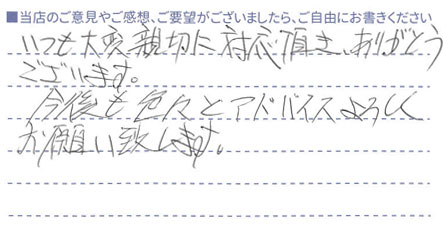 ■当店のご意見やご感想、ご要望がございましたら、ご自由にお書きください
いつも大変親切に対応頂き、ありがとう
ございます。
今後も色々とアドバイスよろしく
お願い致します。